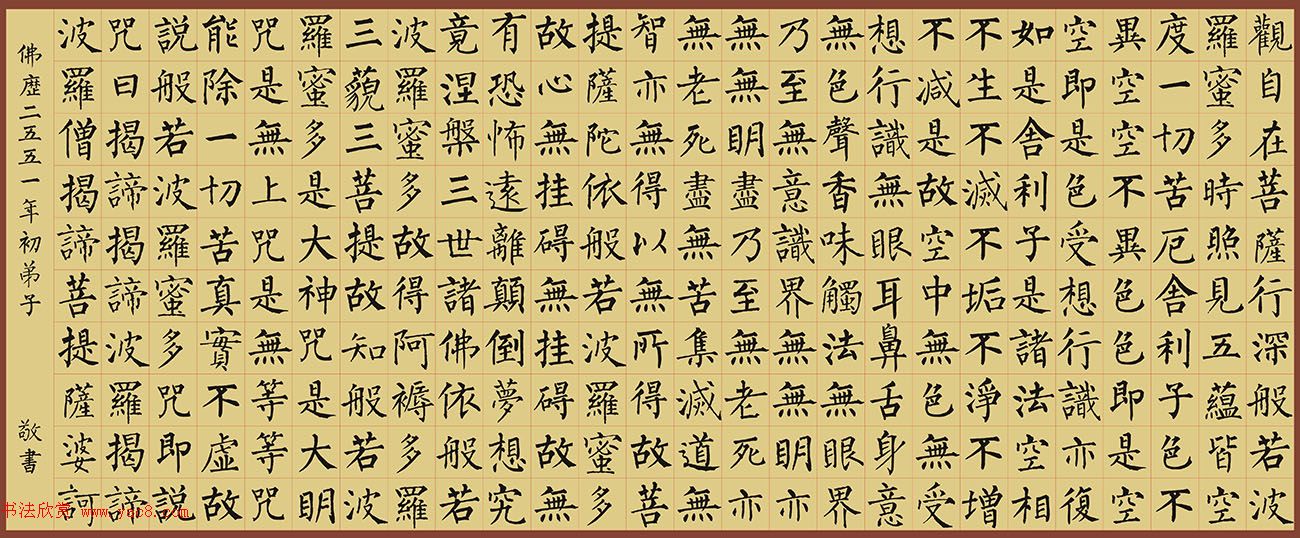 觀自在菩薩行深般若波
羅蜜多時照見五蘊皆空
度一切苦厄舍利子色不
異空空不異色色即是空
空即是色受想行識亦復
如是舍利子是諸法空相
不生不滅不垢不淨不增
不減是故空中無色無受
想行識無眼耳鼻舌身意
無色聲香味觸法無眼界
乃至無意識界無無明亦
無無明盡乃至無老死亦
無老死盡無苦集滅道無
智亦無得以無所得故菩
提薩陀依般若波羅蜜多
故心無挂碍無挂碍故無
有恐怖遠離顛倒夢想究
竟涅槃三世諸佛依般若
波羅蜜多故得阿褥多羅
三藐三菩提故知般若波
羅蜜多是大神咒是大明
咒是無上咒是無等等咒
能除一切苦真實不虛故
説般若波羅蜜多咒即説
咒曰揭諦揭諦波羅揭諦
波羅僧揭諦菩提薩婆訶
佛歷二五五一年初弟子 敬書
书法欣赏 www.yac8.com